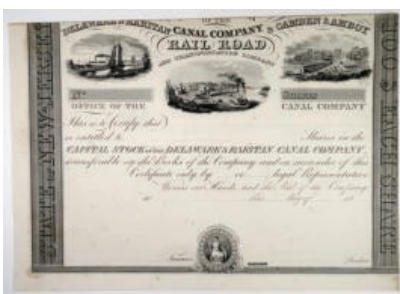 OF THE
DELAWARE & RARITAN CANAL COMPANY & CAMDEN & AMBOY
RAIL ROAD
AND TRANSPORTATION COMPANY
No
SHARES
OFFICE OF THE
CANAL COMPANY
This is to Certify that
is entitled to Shares in the
CAPITAL STOCK of the DELAWARE & RARITAN CANAL COMPANY,
transferable on the Books of the Company and on surrender of this
Certificate only by or legal Representative
Witness our Hands and the Seal of the Company
at this day of 18
STATE OF NEW-JERSEY
100 $ EACH SHARE
Treasurer
President